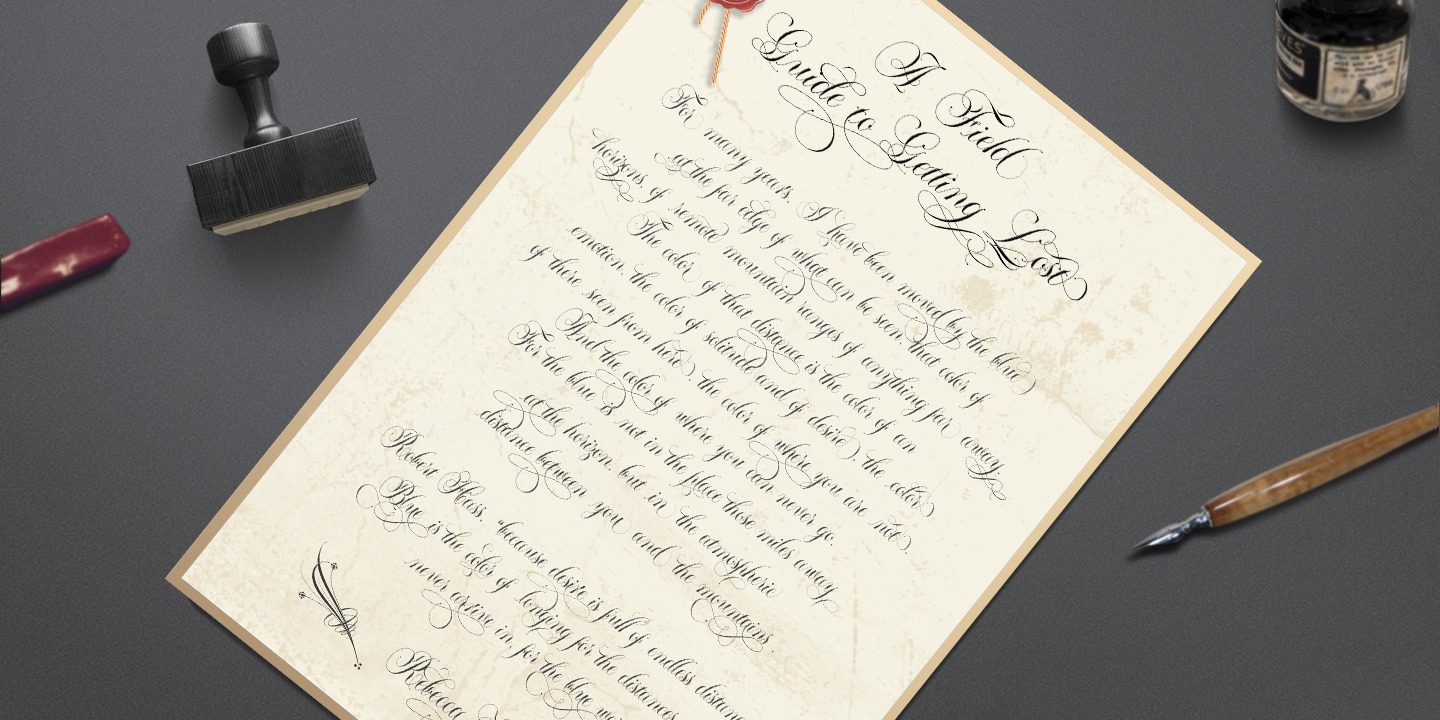 A Field
Guide to Getting Lost
For many years, I have been moved by the blue
at the far edge of what can be seen, that color of
horizons, of remote mountain ranges of anything far away.
The color of that distance is the color of an
emotion, the color of solitude and of desire, the color
of there seen from here, the color of where you are not.
And the color of where you can never go.
For the blue is not in the place those miles away
at the horizon, but in the atmospheric
distance between you and the mountains.
Robert Hass, "because desire is full of endless distanc
Blue is the color of longing for the distances
never arrive in, for the blue wor
Rebecca